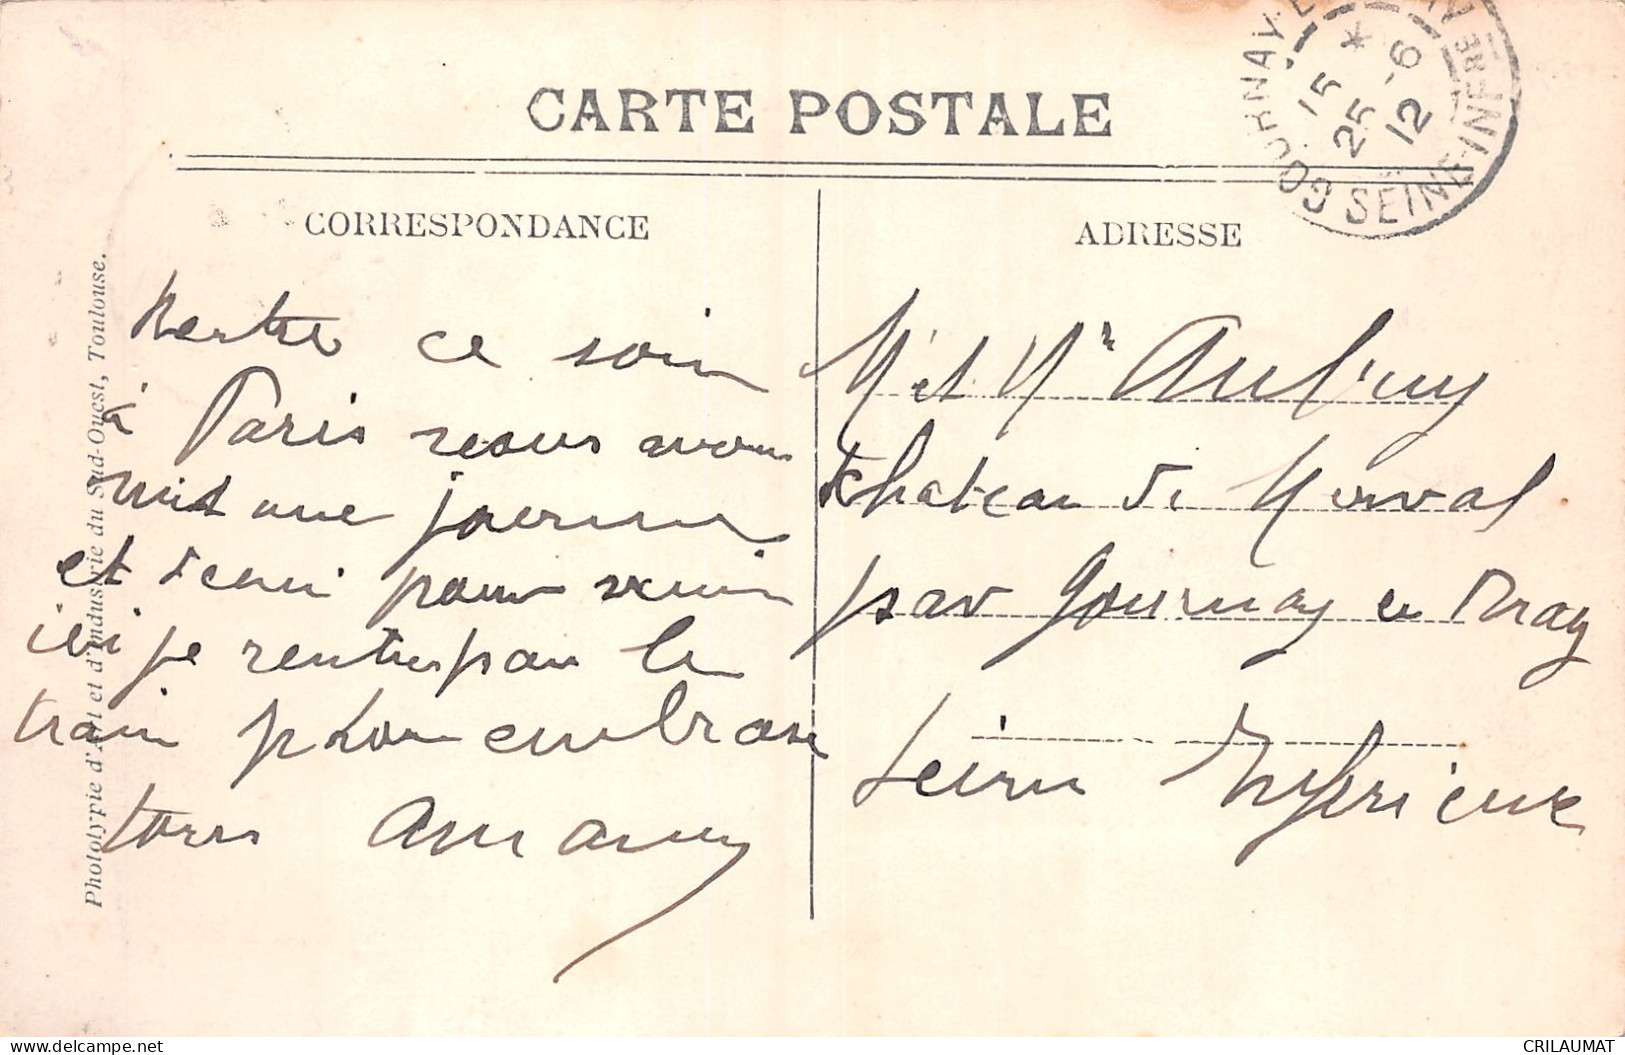 CARTE POSTALE
GOURNAY-E
15 *
25 -6
12
SEINE-INFRE
CORRESPONDANCE
ADRESSE
Phototypie d'Art et d'Industrie du Sud-Ouest, Toulouse.
ce soir
à Paris nous avons
mis une journee
et demi pour venir
ici je rentre par le
train embrasse
tous
Mr et Mme Aubruy
Chateau de Merval
par Gournay en Bray
Seine Inferieure
CRILAUMAT